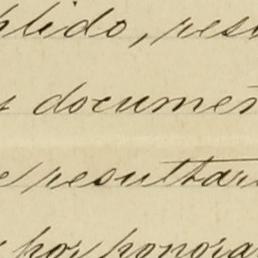 plido, resu
documen
e resultar
por honora